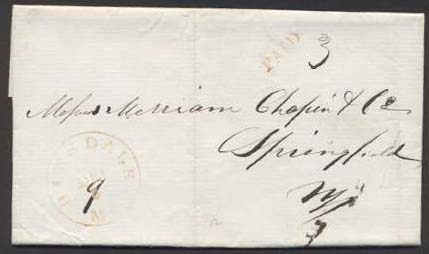 PAID 3
Messrs Merriam Chapin & Co
Springfield
Ms
3
DALE
9